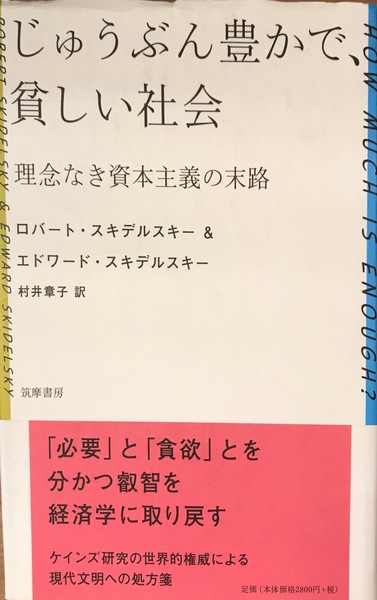 じゅうぶん豊かで、
貧しい社会
理念なき資本主義の末路
ロバート・スキデルスキー &
エドワード・スキデルスキー
村井章子 訳
筑摩書房
ROBERT SKIDELSKY & EDWARD SKIDELSKY
HOW MUCH IS ENOUGH?
「必要」と「貪欲」とを
分かつ叡智を
経済学に取り戻す
ケインズ研究の世界的権威による
現代文明への処方箋
定価(本体価格2800円+税)